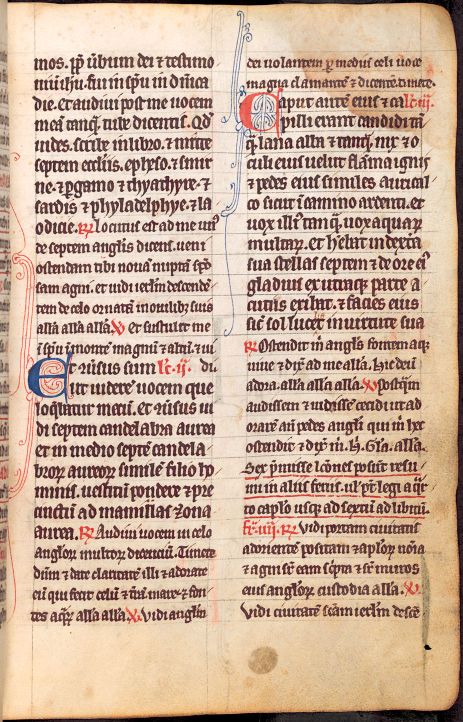 mos. ꝓp̄ u̇bum dei ⁊ testimo
niū ih̄u. fui in sp̄u in dn̄ica
die. et audiui post me uocem
meā tanq̄ tube dicentis. Qd̄
uides. scribe in libro. ⁊ mitte
septem eccl̄iis. epheso. ⁊ smir
ne. ⁊ ꝑgamo ⁊ thyathyre. ⁊
sardis ⁊ phyladelphye. ⁊ la
odicie. ℟ locutus est ad me un̄
de septem angl̄is dicens. ueni
ostendam tibi nouā nuptā spōs
sam agni. et uidi ierl̄m descende
tem de celo ornatā monilibꝫ suis
all̄a all̄a all̄a. ℣ et sustulit me
ī sp̄u ī montē magnū ⁊ altū. ⁊ ui
Et r̄usus sum lc̄. ij. di
ut uiderē uocem que
loq̄batur mecū. et r̄usus ui
di septem candelabra aurea
et in medio septē candela
broꝝ aureoꝝ similē filio ho
minis. uestitū pondere ⁊ p̄re
cinctū ad mamillas zona
aurea. ℟ Audiui uocem in celo
angl̄oꝝ multoꝝ dicenciū. Timete
dn̄m ⁊ date claritatē illi ⁊ adorate
eū qui fecit celū ⁊ t̄rā. mare. ⁊ fon
tes aq̄ꝝ all̄a all̄a. ℣ Vidi angl̄m
dei uolantem ꝑ mediū celi uoce
magna clamantē ⁊ dicentē. timete.
Caput autē eius ⁊ ca lc̄. iij.
pilli erant candidi tā
q̄ lana alba ⁊ tanq̄ nix ⁊ o
culi eius uelut flāma ignis
⁊ pedes eius similes aurical
co sicut ī camino ardenti. et
uox illiꝰ tanq̄ uox aquaꝝ
multaꝝ. et h̄ebat in dext̄a
sua stellas septem ⁊ de ore eiꝰ
gladius ex utraque parte a
cutus exibat. ⁊ facies eius
sic̄ sol lucet in uirtute sua
℟ Ostendit m̄ angl̄s fontem aq̄
uiue ⁊ dix̄ ad me all̄a. Hic deū
adora. all̄a all̄a all̄a. ℣ postq̄m
audissem ⁊ uidissē cecidi ut ad
orarē an̄ pedes angl̄i qui m̄ hec
ostendit ⁊ dix̄ m̄. H̄. Gl̄a. all̄a.
Sex p̄misse lc̄ones possūt resu
mi in aliis feriis. ul̓ pn̄t legi a q̄r
to cap̄lo usqꝫ ad sextū ad libitū.
fr̄. iiij. ℟ Vidi portam ciuitatis
ad orientē positam ⁊ ap̄loꝝ nōīa
⁊ agni sr̄ eam sc̄pta ⁊ sr̄ muros
eius angl̄oꝝ custodia all̄a. ℣
Vidi ciuitatē sc̄am ierl̄m descē